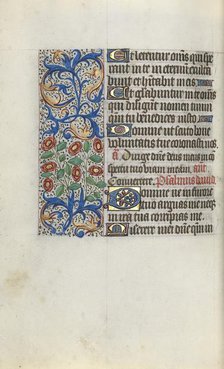 Et letentur om̄s qui spe
rant in te in eternū exulta
bunt et hitabis in eis
Et gl'abuntur in te om̄s
qui digūt nomen tuum
qm̄ tu benedices iusto
Domine ut scuto bone
volūtatis tue coronasti nos
añ. Dirige dn̄e deus meus in cō
spectu tuo viam meam. añ.
Convertere. Psalmus david
Domine ne in furore
tuo arguas me neq; in
in ira tua corripias me.
Miserere mei dn̄e qm̄ in